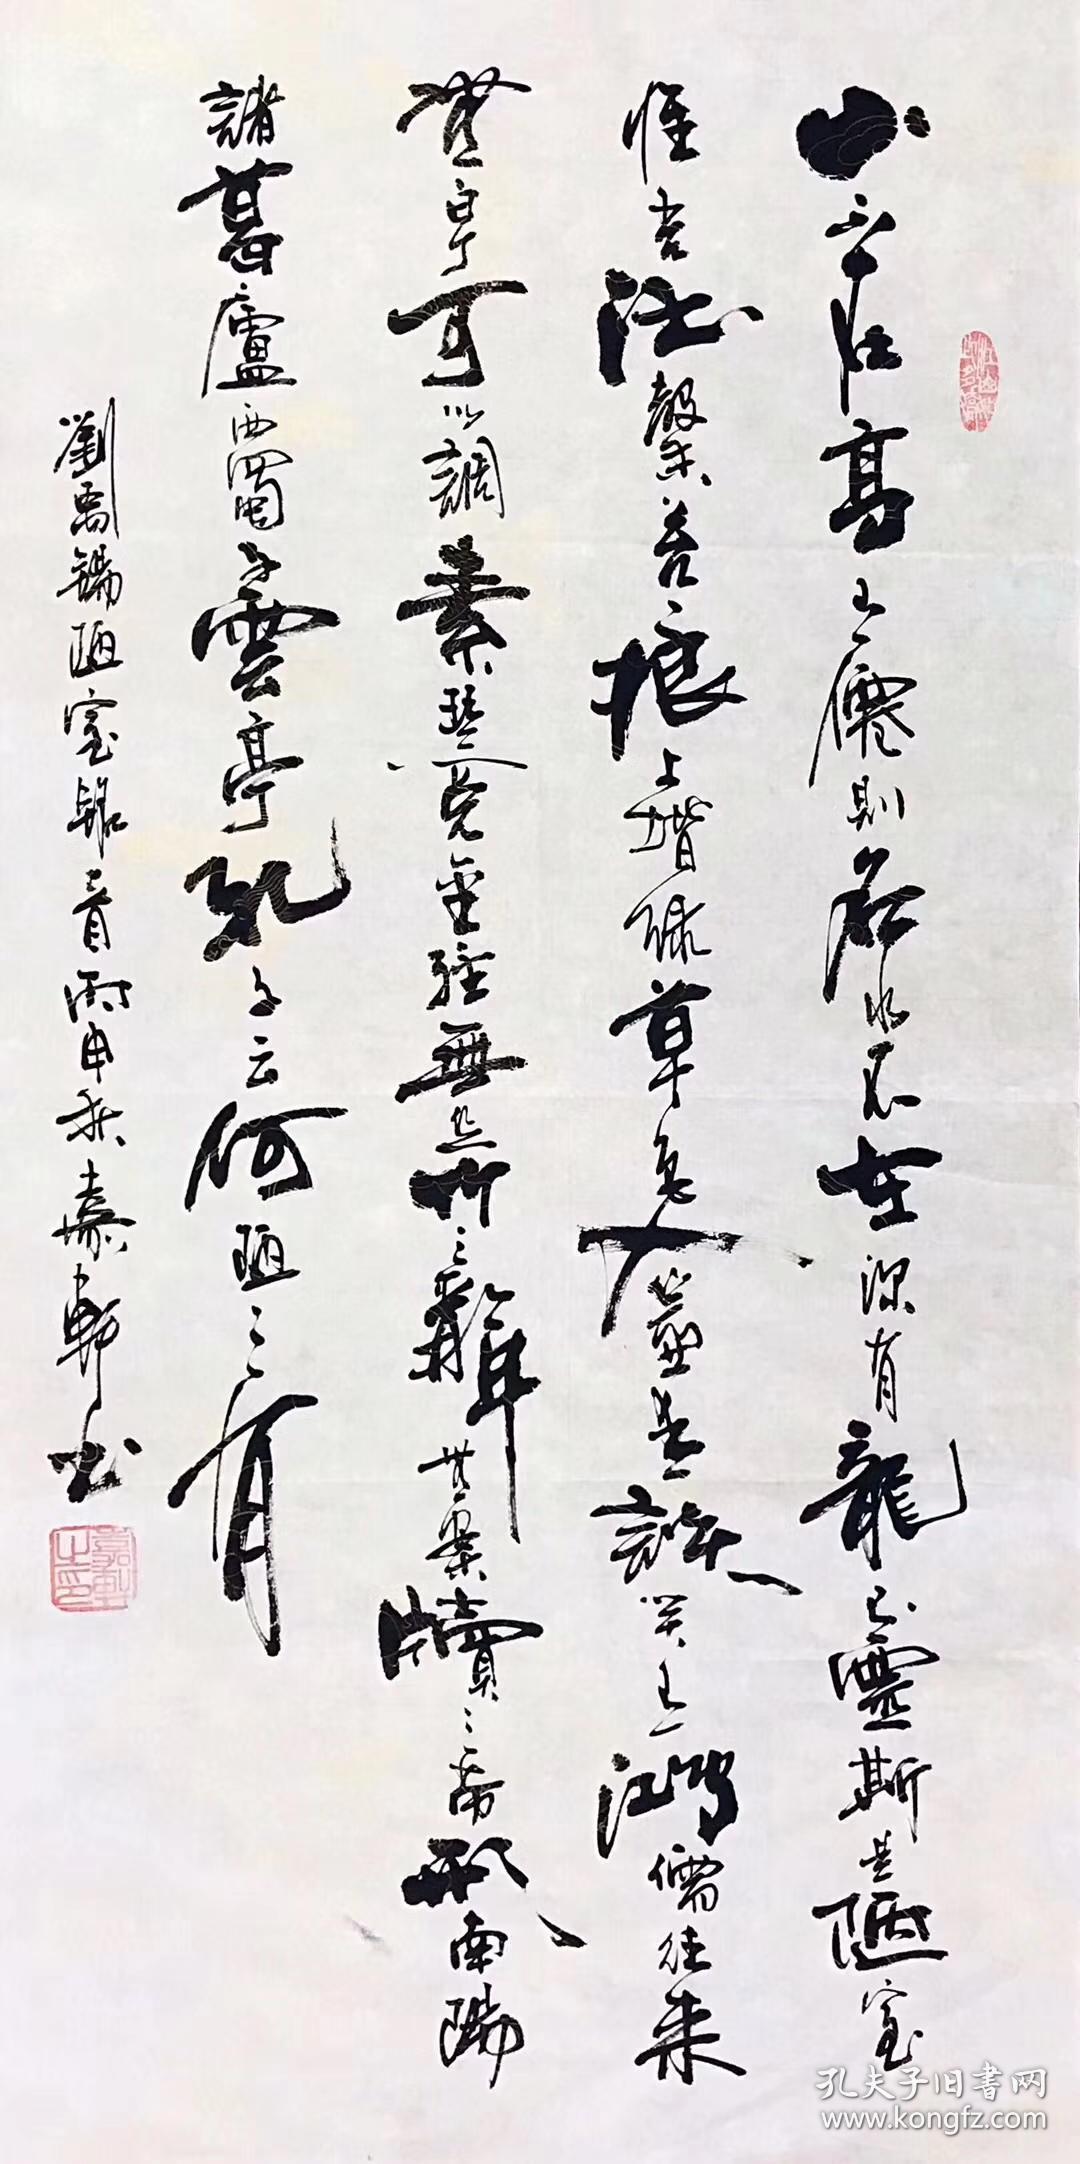 山不在高有僊則名水不在深有龍則靈斯是陋室
惟吾德馨苔痕上堦綠草色入簾青談笑有鴻儒往來
無白丁可以調素琴閱金經無絲竹之亂耳無案牘之勞形南陽
諸葛廬西蜀子雲亭孔子云何陋之有
劉禹錫陋室銘一首丙申秋嘉軒書
嘉軒之印
孔夫子旧書网
www.kongfz.com